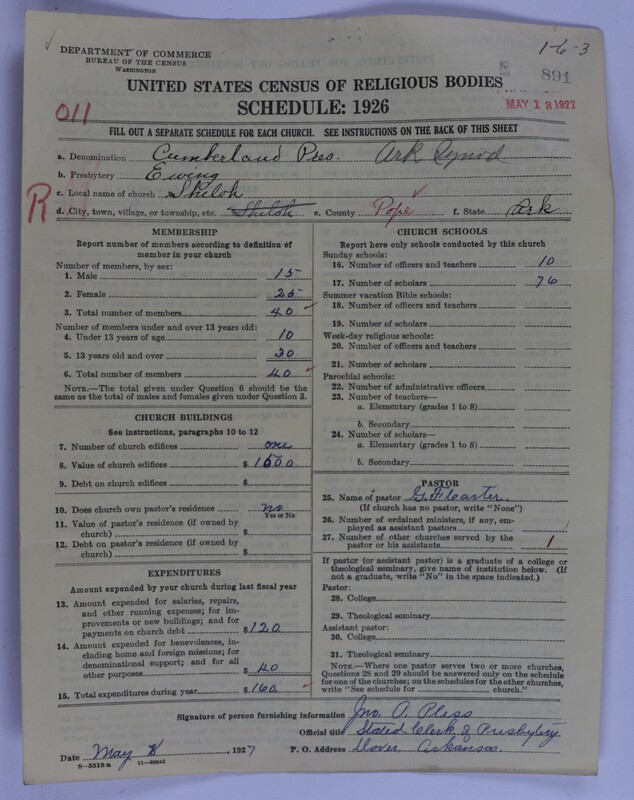 DEPARTMENT OF COMMERCE
BUREAU OF THE CENSUS
WASHINGTON
1-6-3
891
MAY 18 1927
UNITED STATES CENSUS OF RELIGIOUS BODIES
SCHEDULE: 1926
011
FILL OUT A SEPARATE SCHEDULE FOR EACH CHURCH. SEE INSTRUCTIONS ON THE BACK OF THIS SHEET
a. Denomination Cumberland Pres. Ark Synod
b. Presbytery Ewing
c. Local name of church Shiloh
R
d. City, town, village, or township, etc. Shiloh e. County Pope f. State Ark
MEMBERSHIP
Report number of members according to definition of
member in your church
Number of members, by sex:
1. Male 15
2. Female 25
3. Total number of members 40
Number of members under and over 13 years old:
4. Under 13 years of age 10
5. 13 years old and over 30
6. Total number of members 40
NOTE.—The total given under Question 6 should be
same as the total of males and females given under Question 3.
CHURCH BUILDINGS
See instructions, paragraphs 10 to 12
7. Number of church edifices one
8. Value of church edifices $1500
9. Debt on church edifices $
10. Does church own pastor's residence no
Yes or No
11. Value of pastor's residence (if owned by
church) $
12. Debt on pastor's residence (if owned by
church) $
EXPENDITURES
Amount expended by your church during last fiscal year
13. Amount expended for salaries, repairs,
and other running expenses; for im-
provements or new buildings; and for
payments on church debt $120
14. Amount expended for benevolences, in-
cluding home and foreign missions; for
denominational support; and for all
other purposes $40
15. Total expenditures during year $160
CHURCH SCHOOLS
Report here only schools conducted by this church
Sunday schools:
16. Number of officers and teachers 10
17. Number of scholars 76
Summer vacation Bible schools:
18. Number of officers and teachers
19. Number of scholars
Week-day religious schools:
20. Number of officers and teachers
21. Number of scholars
Parochial schools:
22. Number of administrative officers
23. Number of teachers—
a. Elementary (grades 1 to 8)
b. Secondary
24. Number of scholars—
a. Elementary (grades 1 to 8)
b. Secondary
PASTOR
25. Name of pastor G. F. Carter
(If church has no pastor, write "None")
26. Number of ordained ministers, if any, em-
ployed as assistant pastors
27. Number of other churches served by the
pastor or his assistants 1
If pastor (or assistant pastor) is a graduate of a college or
theological seminary, give name of institution below. (If
not a graduate, write "No" in the space indicated.)
Pastor:
28. College
29. Theological seminary
Assistant pastor:
30. College
31. Theological seminary
NOTE.—Where one pastor serves two or more churches,
Questions 28 and 29 should be answered only on the schedule
for one of the churches; on the schedules for the other churches,
write "See schedule for church."
Signature of person furnishing information Jno. A. Pless
Official title Stated Clerk of Presbytery
Date May 8, 1927 P. O. Address Dover, Arkansas.
8-5519a